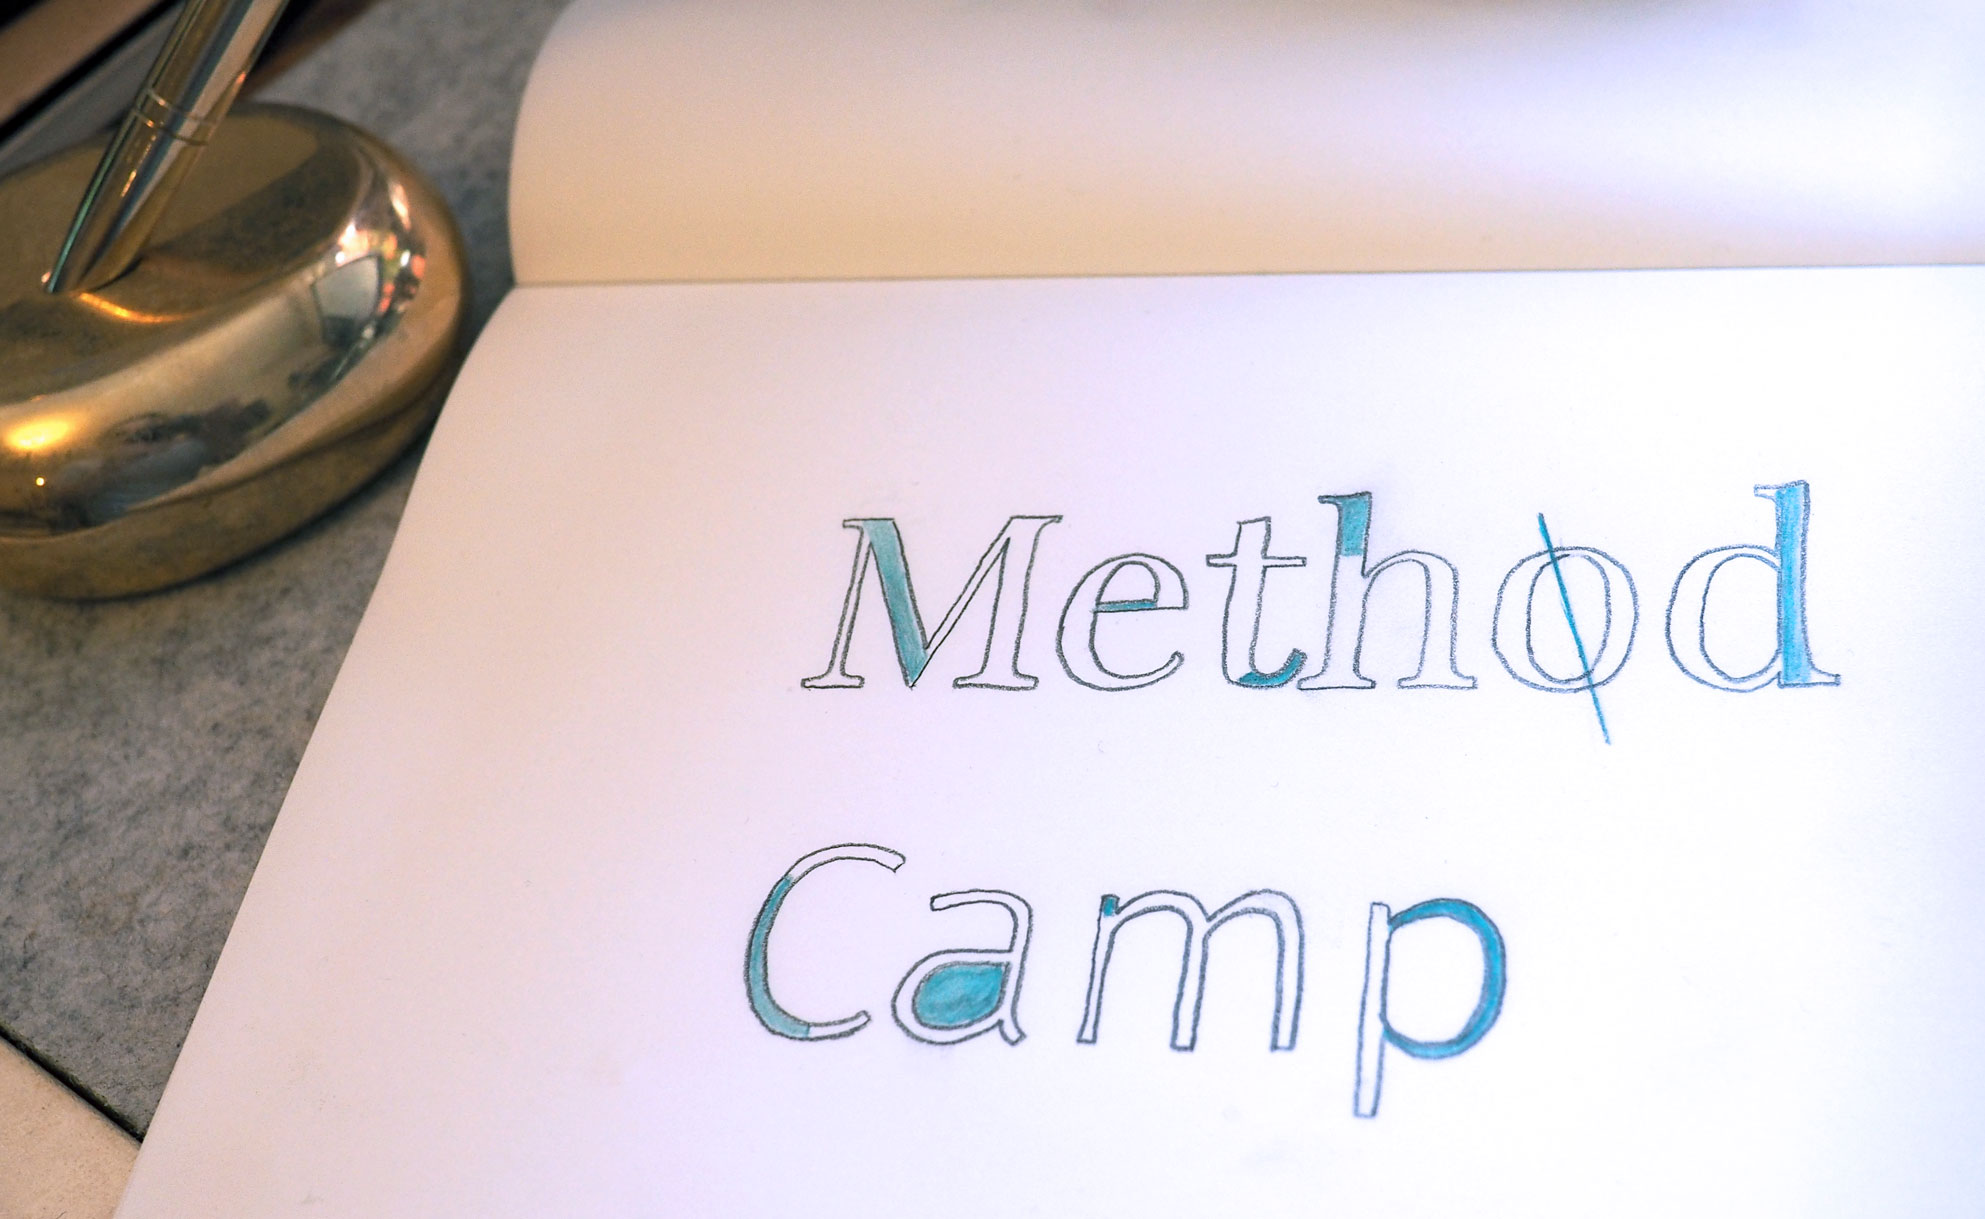 Method
Camp